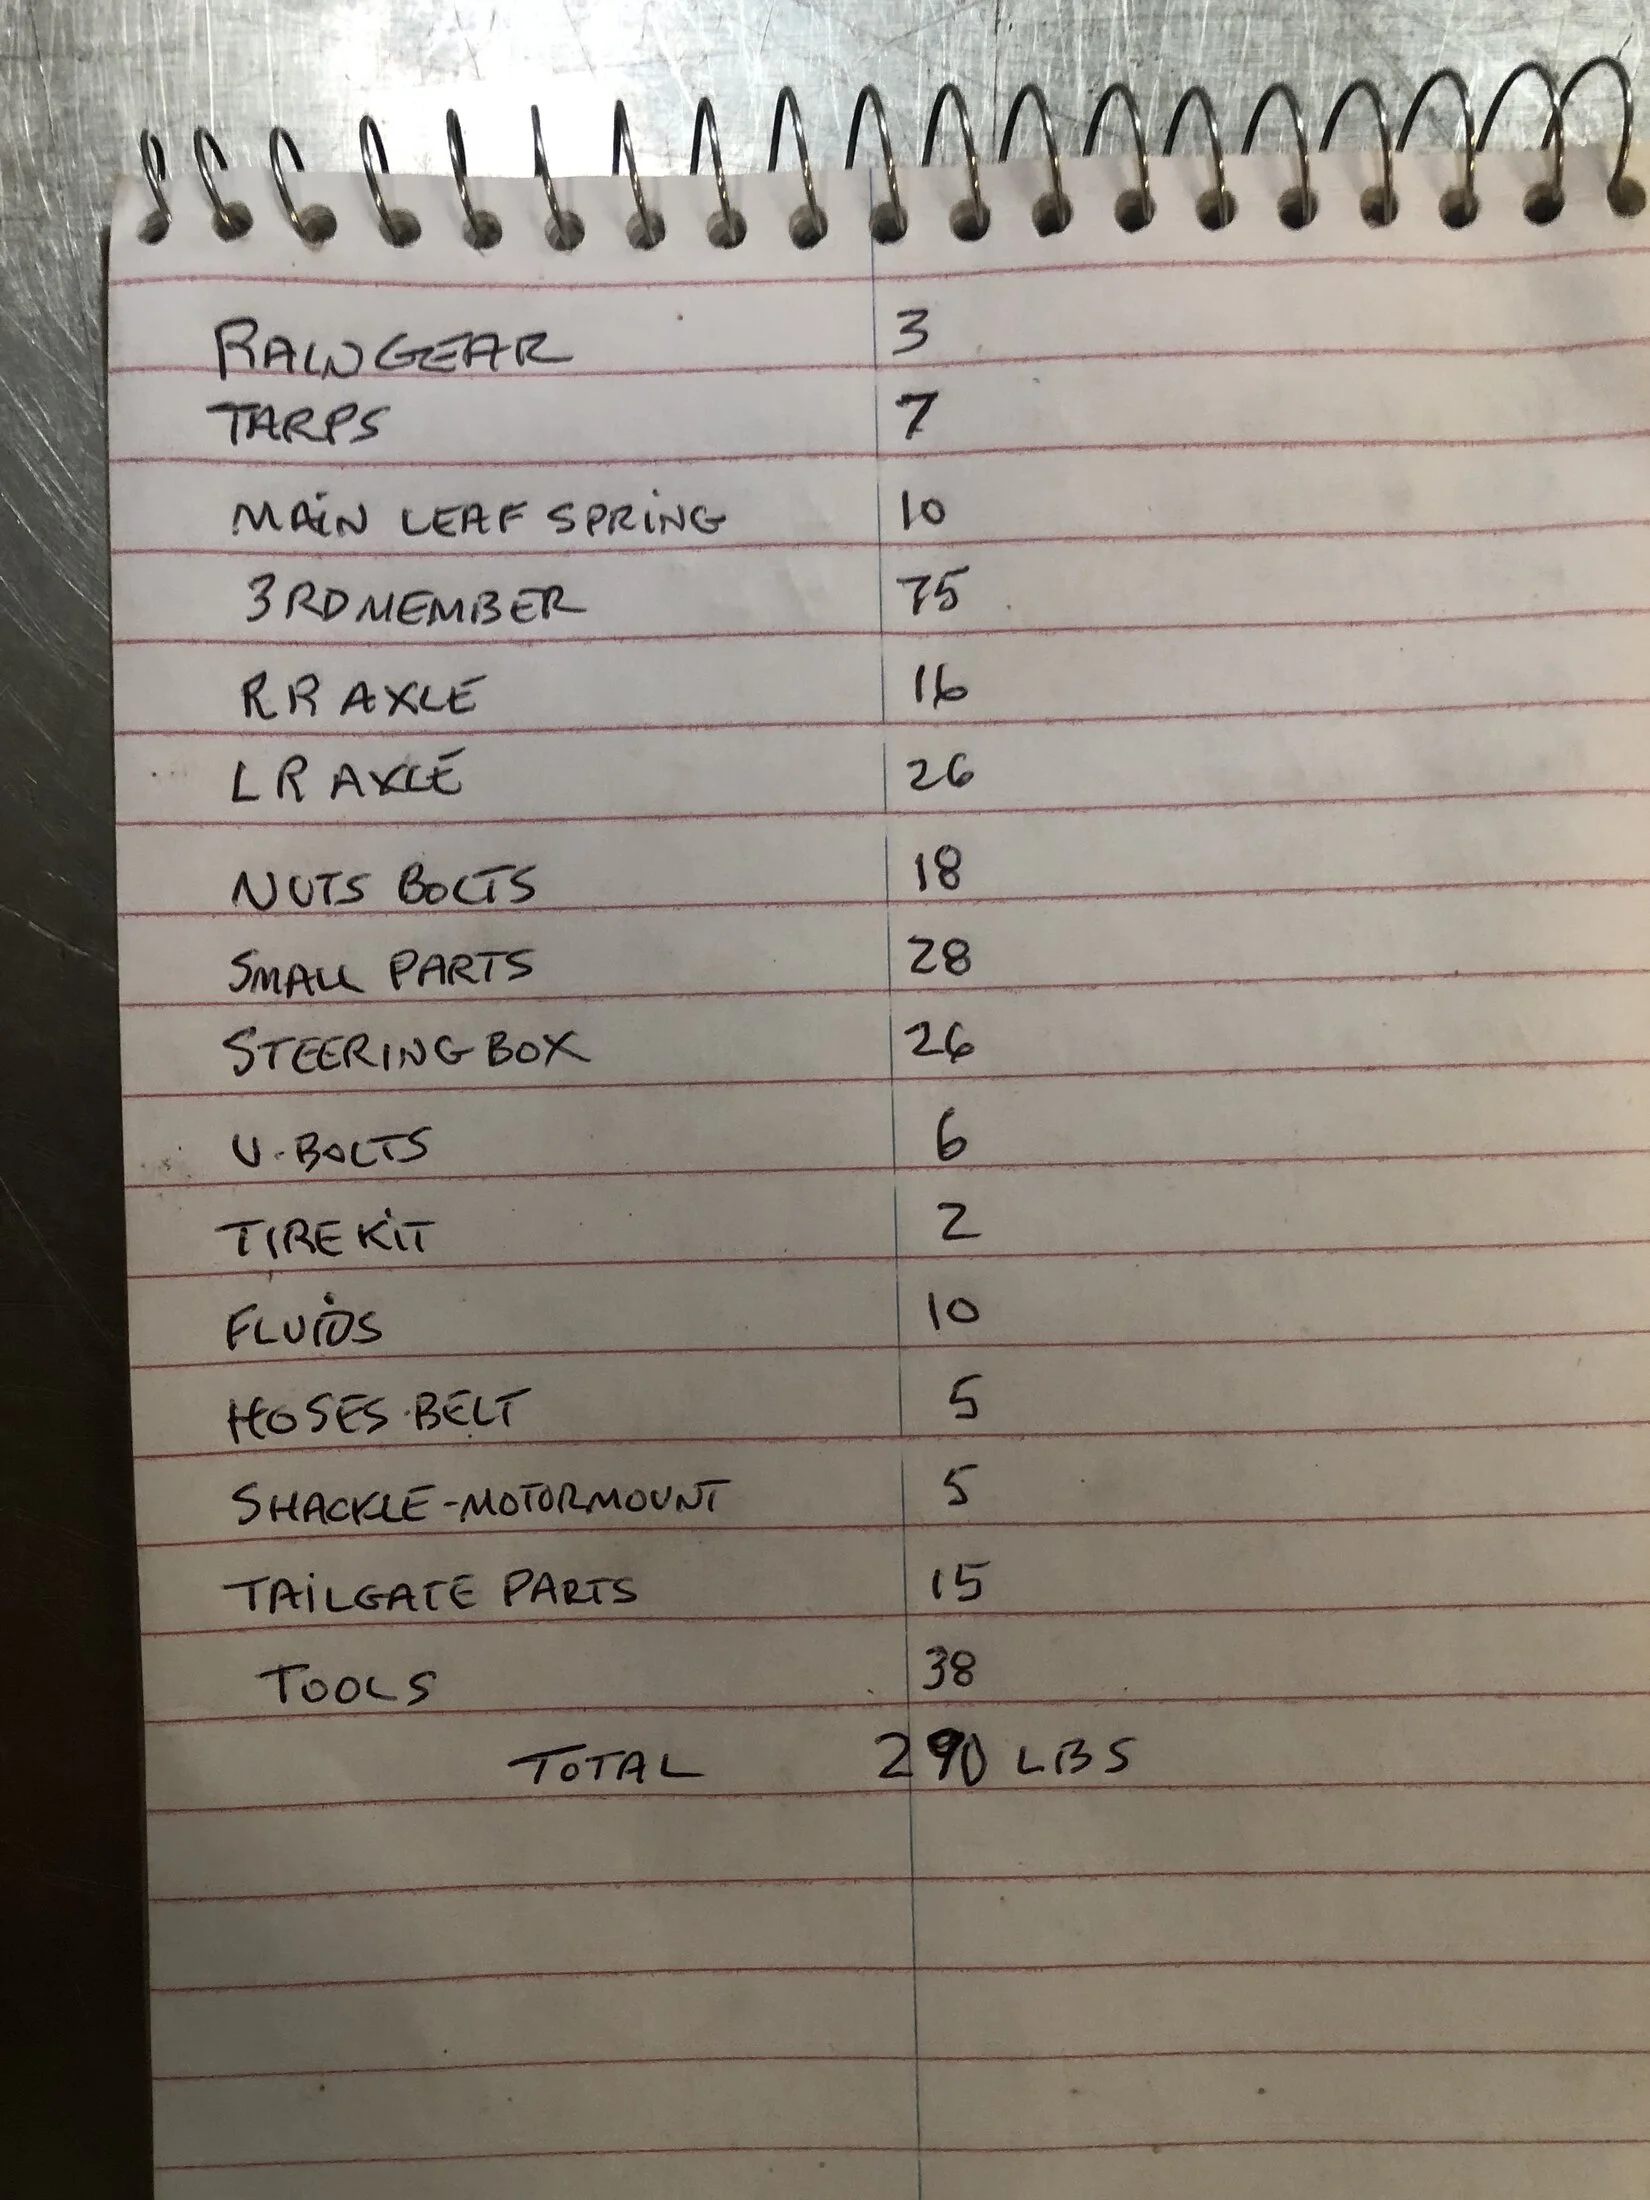 RAINGEAR 3
TARPS 7
MAIN LEAF SPRING 10
3RD MEMBER 75
R R AXLE 16
L R AXLE 26
NUTS BOLTS 18
SMALL PARTS 28
STEERING BOX 26
U-BOLTS 6
TIRE KIT 2
FLUIDS 10
HOSES-BELT 5
SHACKLE-MOTORMOUNT 5
TAILGATE PARTS 15
TOOLS 38
TOTAL 290 LBS